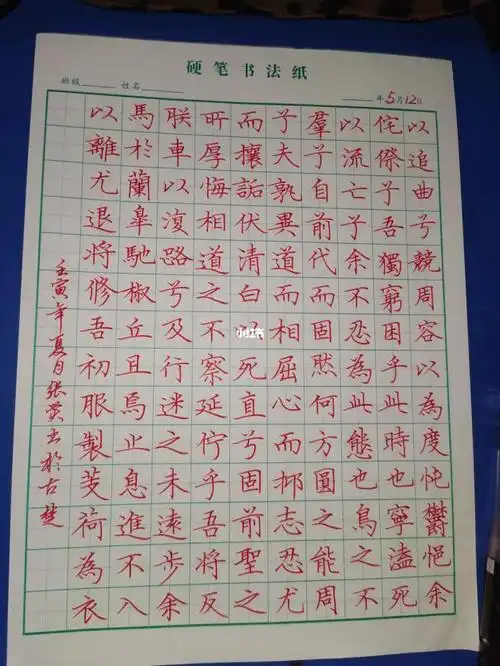 硬笔书法纸
班级 姓名 年5月12日
以追曲兮競周容以為度忳鬱悒余
侘傺予吾獨窮困乎此時也寧溘死
以流亡予余不忍為此態也鳥之不
羣子自前代而固然何方圓之能周
子夫孰異道而相屈心而抑志忍尤
而攘詬伏清白死直兮固前聖之
所厚悔相道之不察延佇乎吾將反
朕車以復路兮及行迷之未遠步余
馬於蘭皋馳椒丘且焉止息進不入
以離尤退將修吾初服製芰荷為衣
壬寅年夏月张书於古楚
小红书